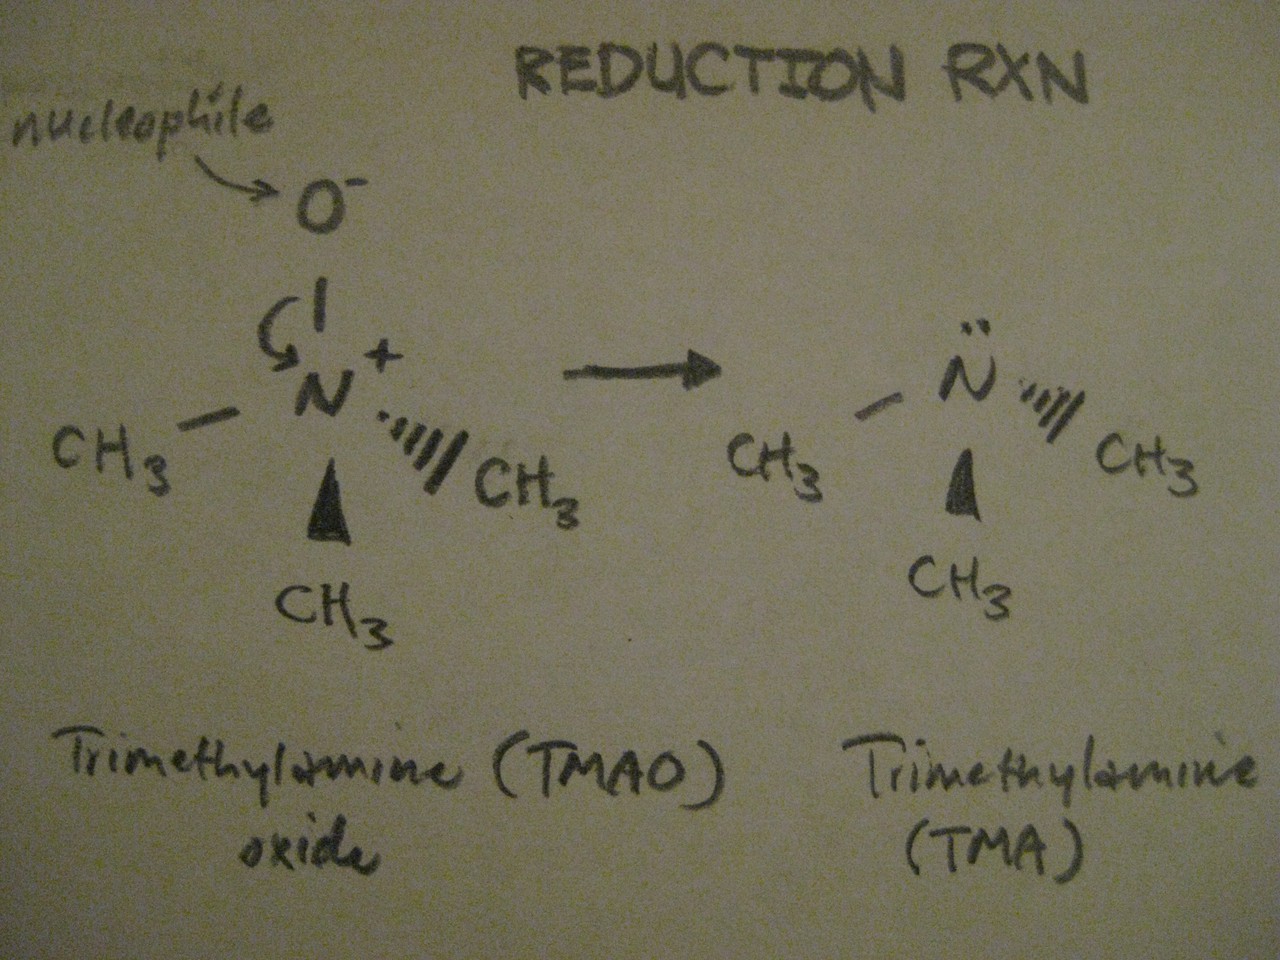 REDUCTION RXN
nucleophile
O⁻
N⁺
CH₃
CH₃
CH₃
N̈
CH₃
CH₃
CH₃
Trimethylamine (TMAO)
oxide
Trimethylamine
(TMA)